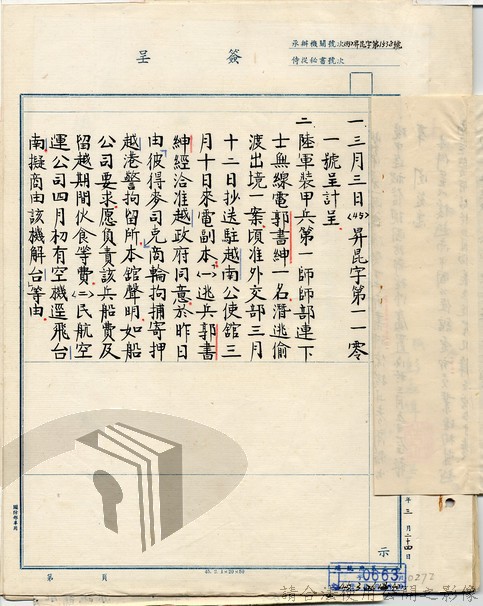 承辦機關號次(45)昇昆字第1372號
侍從秘書號次
簽呈
一三月三日(45)昇昆字第一一零
一號呈計呈
二陸軍裝甲兵第一師師部連下
士無線電郭書紳一名潛逃偷
渡出境一案頃准外交部三月
十二日抄送駐越南公使舘三
月十日來電副本(一)逃兵郭書
紳經洽准越政府同意於昨日
由彼得麥司克商輪拘捕寄押
越港警拘留所本舘聲明如船
公司要求愿負責該兵船費及
留越期間伙食等費(二)民航空
運公司四月初有空機遝飛台
南擬商由該機解台等由
年三月二十四日
示
第 頁
0663
0272
請合法使用公開之影像